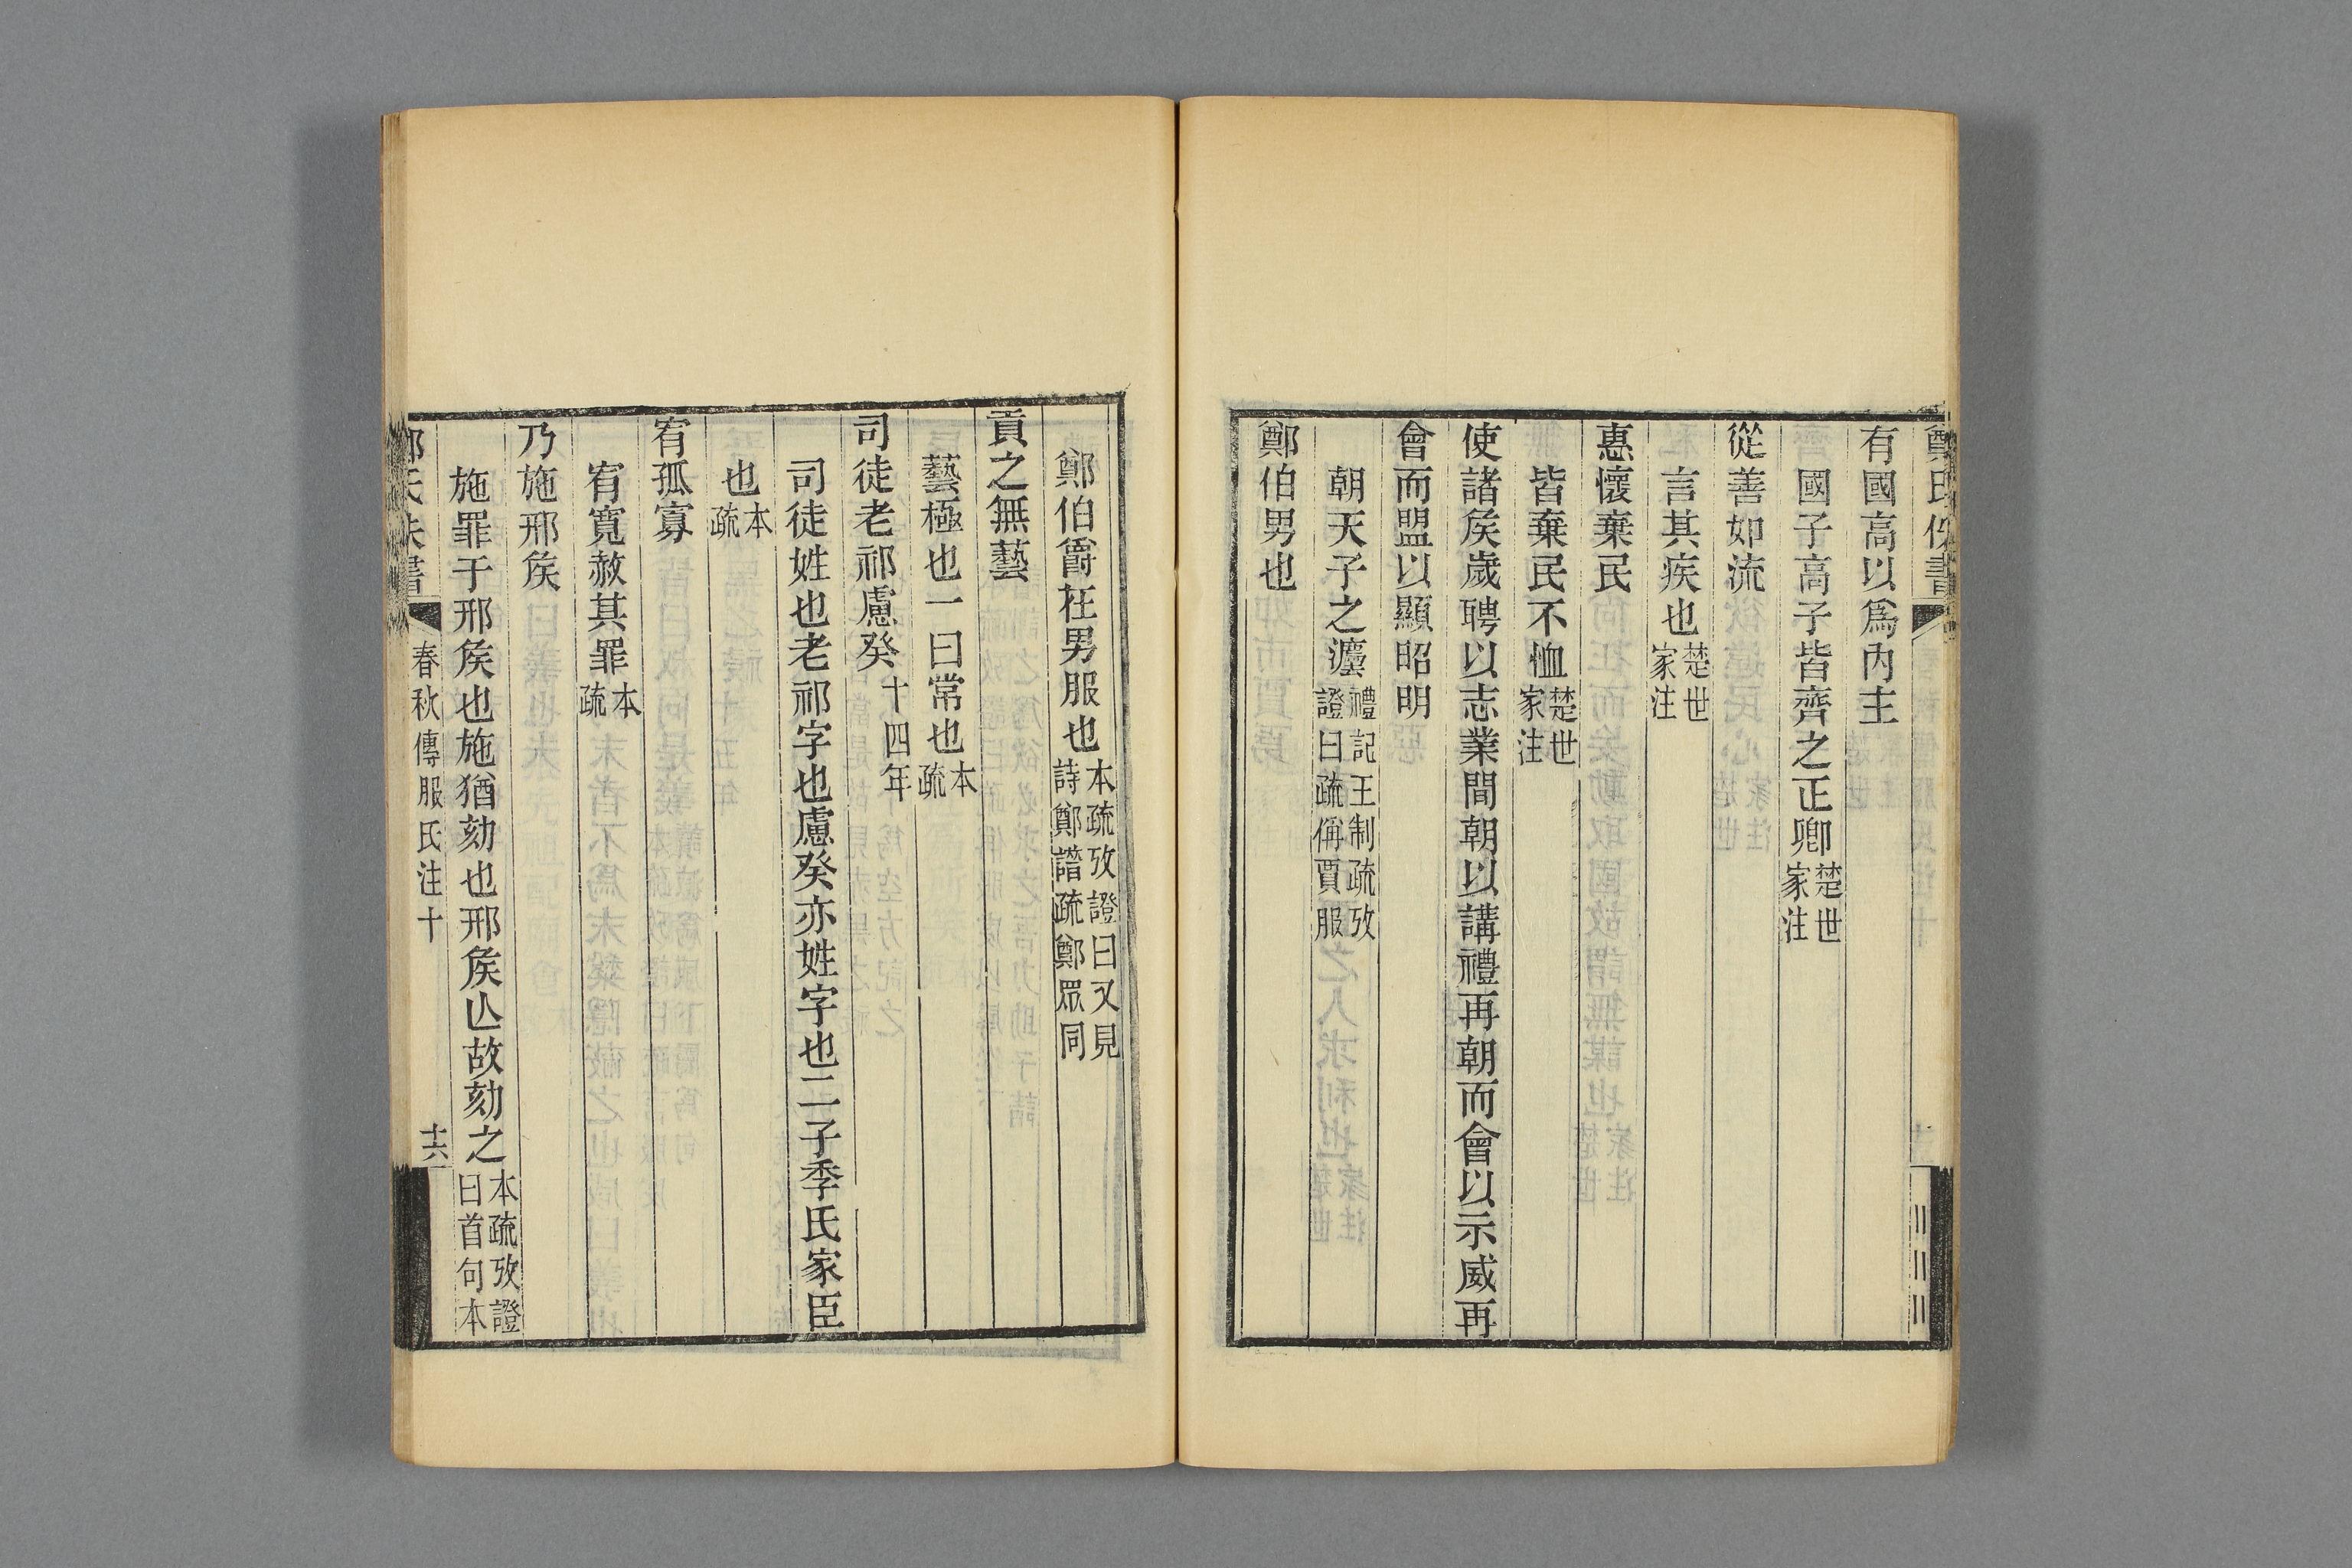 鄭氏佚書
有國高以爲內主
國子高子皆齊之正卿楚世家注
從善如流
言其疾也楚世家注
惠懷棄民
皆棄民不恤楚世家注
使諸矦歲聘以志業間朝以講禮再朝而會以示威再
會而盟以顯昭明
朝天子之灋禮記王制疏攷證曰疏偁賈服
鄭伯男也
鄭伯爵在男服也本疏攷證曰又見詩鄭譜疏鄭眾同
貢之無藝
藝極也一曰常也本疏
司徒老祁慮癸十四年
司徒姓也老祁字也慮癸亦姓字也二子季氏家臣
也本疏
宥孤寡
宥寬赦其罪本疏
乃施邢矦
施罪于邢矦也施猶劾也邢矦亾故劾之本疏攷證曰首句本
鄭氏佚書 春秋傳服氏注十 十六